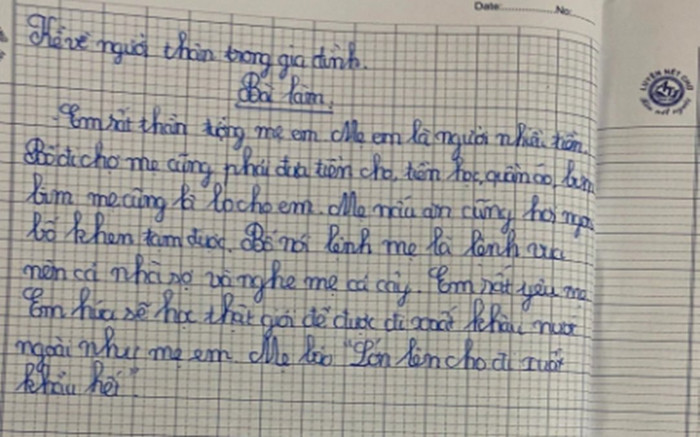 Date: No:
Kể về người thân trong gia đình.
Bài làm.
Em rất thần tượng mẹ em. Mẹ em là người nhiều tiền.
Bố đi chợ mẹ cũng phải đưa tiền cho, tiền học, quần áo, lum
lum mẹ cũng lo cho em. Mẹ nấu ăn cũng hơi ngon
bố khen tạm được. Bố nói lệnh mẹ là lệnh vua
nên cả nhà sợ và nghe mẹ cả cây. Em rất yêu mẹ
Em hứa sẽ học thật giỏi để được đi xuất khẩu nước
ngoài như mẹ em. Mẹ bảo "Lớn lên cho đi xuất
khẩu hết".